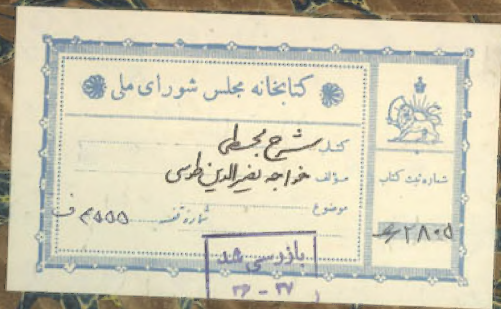 کتابخانه مجلس شورای ملی
کتاب شرح مجسطی
مؤلف خواجه نصیرالدین طوسی
موضوع
شماره قفسه ۴۵۵۵ ف
شماره ثبت کتاب
۲۸۰۵
بازرسی شد
۳۶ - ۳۷